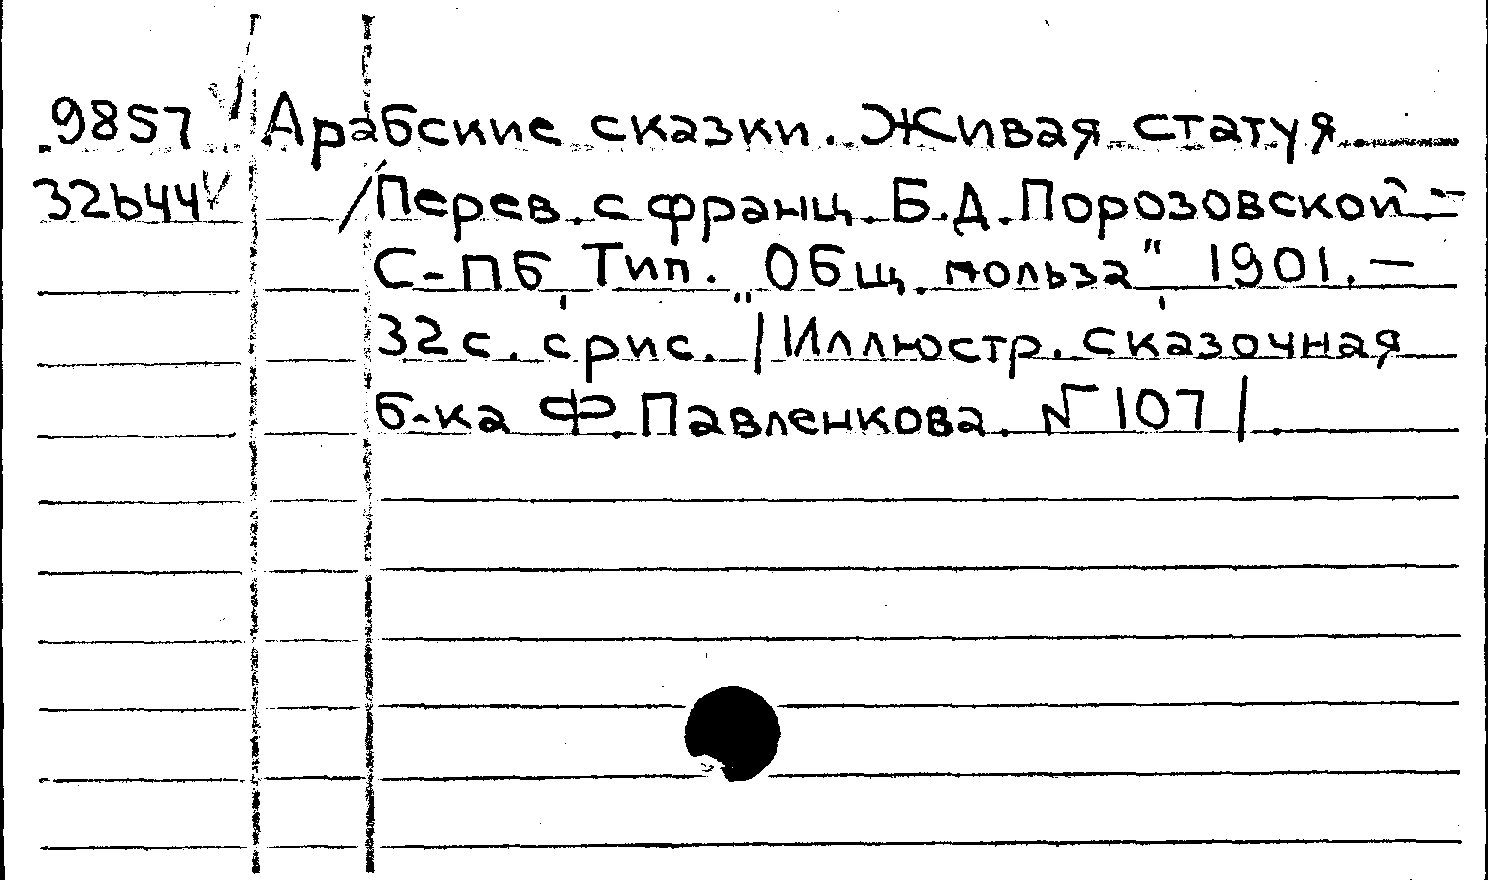 9857 Арабские сказки. Живая статуя
32644 /Перев. с франц. Б.Д. Порозовской. –
С-Пб, Тип. "Общ. польза", 1901. –
32 с. с рис. /Иллюстр. сказочная
б-ка Ф. Павленкова. № 107/.